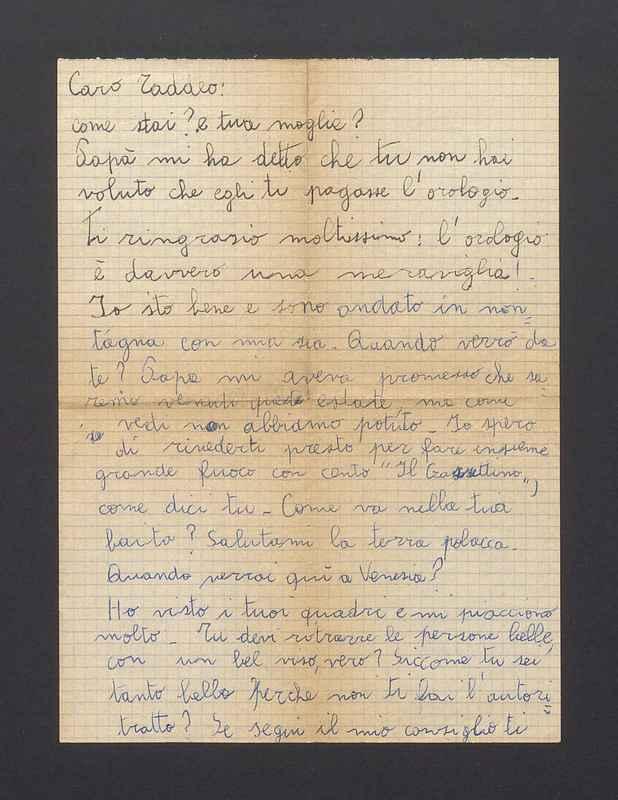 Caro Taddeo:
come stai? e tua moglie?
Papà mi ha detto che tu non hai
voluto che egli ti pagasse l'orologio.
Ti ringrasio moltissimo: l'orologio
è davvero una meraviglia!
Io sto bene e sono andato in mon=
tagna con mia sia. Quando verrò da
te? Papa mi aveva promesso che sa
remo venuti questa estate, ma come
vedi non abbiamo potuto. Io spero
di rivederti presto per fare insieme
grande fuoco con canto "Il Gassettino",
come dici tu. Come va nella tua
baita? Salutami la terra polacca.
Quando verrai qui a Venesia?
Ho visto i tuoi quadri e mi piacciono
molto. Tu devi ritrarre le persone belle,
con un bel viso, vero? Siccome tu sei
tanto bello perchè non ti fai l'autori=
tratto? Se segui il mio consiglio ti